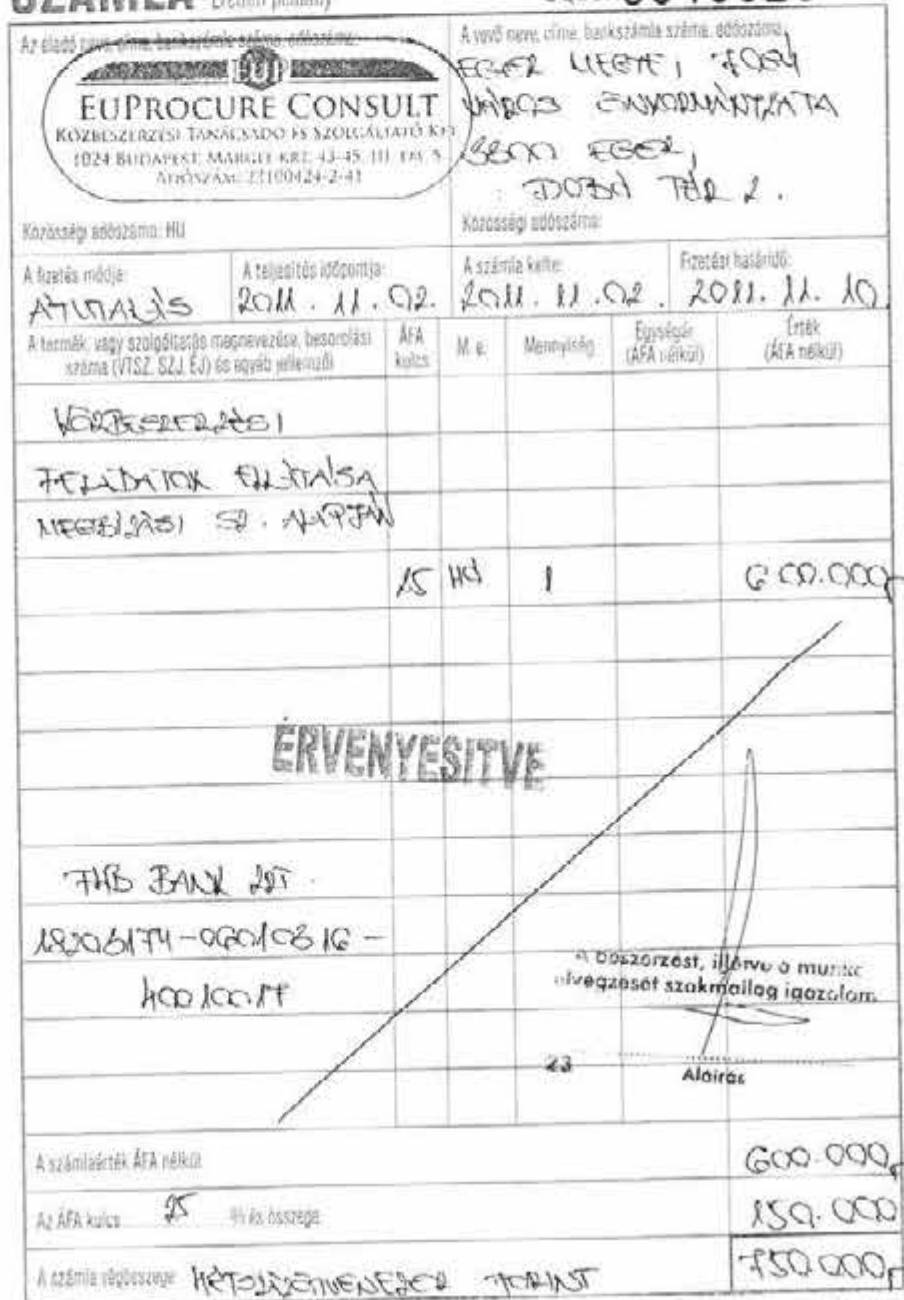 SZÁMLA Eredeti példány
Az eladó neve, címe, bankszámla száma, adószáma:
EUP
EUPROCURE CONSULT
KÖZBESZERZÉSI TANÁCSADÓ ÉS SZOLGÁLTATÓ KFT
1024 BUDAPEST, MARGIT KRT. 43-45. III. EM. 5
ADÓSZÁM: 23100424-2-41
Közösségi adószáma: HU
A vevő neve, címe, bankszámla száma, adószáma:
EGER MEGYEI JOGÚ
VÁROS ÖNKORMÁNYZATA
3300 EGER,
DOBÓ TÉR 2.
Közösségi adószáma:
A fizetés módja: A teljesítés időpontja: A számla kelte: Fizetési határidő:
ÁTUTALÁS 2011. 11. 02. 2011. 11. 02. 2011. 11. 10
A termék, vagy szolgáltatás megnevezése, besorolási száma (VTSZ, SZJ, ÉJ) és egyéb jellemzői ÁFA kulcs M. e. Mennyiség Egységár (ÁFA nélkül) Érték (ÁFA nélkül)
KÖZBESZERZÉSI
FELADATOK ELLÁTÁSA
MEGBÍZÁSI SZ. ALAPJÁN
25 HÓ 1 600.000,-
ÉRVÉNYESÍTVE
FHB BANK ZRT.
A beszerzést, illetve a munka
elvégzését szakmailag igazolom
23
Aláírás
A számlaérték ÁFA nélkül 600.000,-
Az ÁFA kulcs 25 % és összege 150.000
A számla végösszege HÉTSZÁZÖTVENEZER FORINT 750.000,-